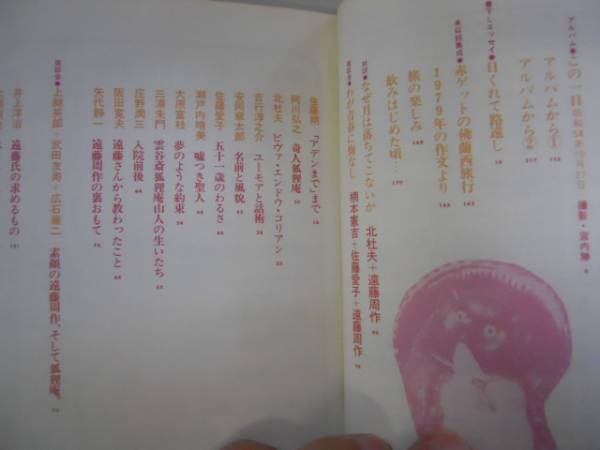 アルバム● この一日 昭和54年10月27日 撮影・宮内勝
アルバムから①
アルバムから②
エッセイ● 日くれて路遠し
赤ゲットの佛蘭西旅行
1979年の作文より
旅の楽しみ
飲みはじめた頃…
対談● なぜ日は落ちてこないか 北杜夫+遠藤周作
わが青春に悔なし 楠本憲吉+佐藤愛子+遠藤周作
佐藤朔 「アデンまで」まで
阿川弘之 奇人狐狸庵
北杜夫 ビヴァ・エンドウ・コリアン
吉行淳之介 ユーモアと話術
安岡章太郎 名前と風貌
佐藤愛子 五十一歳のわるさ
瀬戸内晴美 嘘つき聖人
大原富枝 夢のような約束
三浦朱門 雲谷斎狐狸庵山人の生いたち
庄野潤三 入院前後
阪田寛夫 遠藤さんから教わったこと
矢代静一 遠藤周作の裏おもて
座談会● 上総英郎+武田友寿+広石廉二 素顔の遠藤周作、そして狐狸庵。
井上洋治 遠藤氏の求めるもの